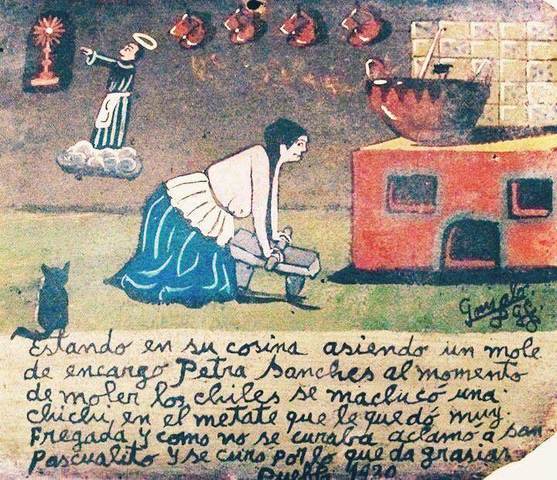 Gonzalo
Estando en su cosina asiendo un mole
de encargo Petra Sanches al momento
de moler los chiles se machucó una
chichi, en el metate que le quedó muy.
Fregada, y como no se curaba aclamó a San
Pascualito y se curo por lo que da grasias
Puebla 1930